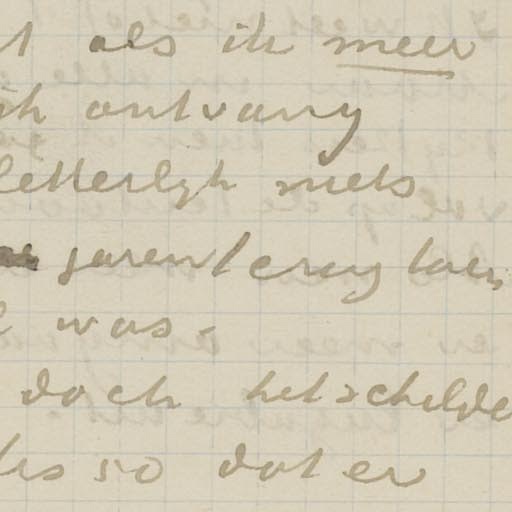 t als ik meer
ik ontvang
letterlijk niets
jaren terug toen
was.
doch het schilde
is so dat er